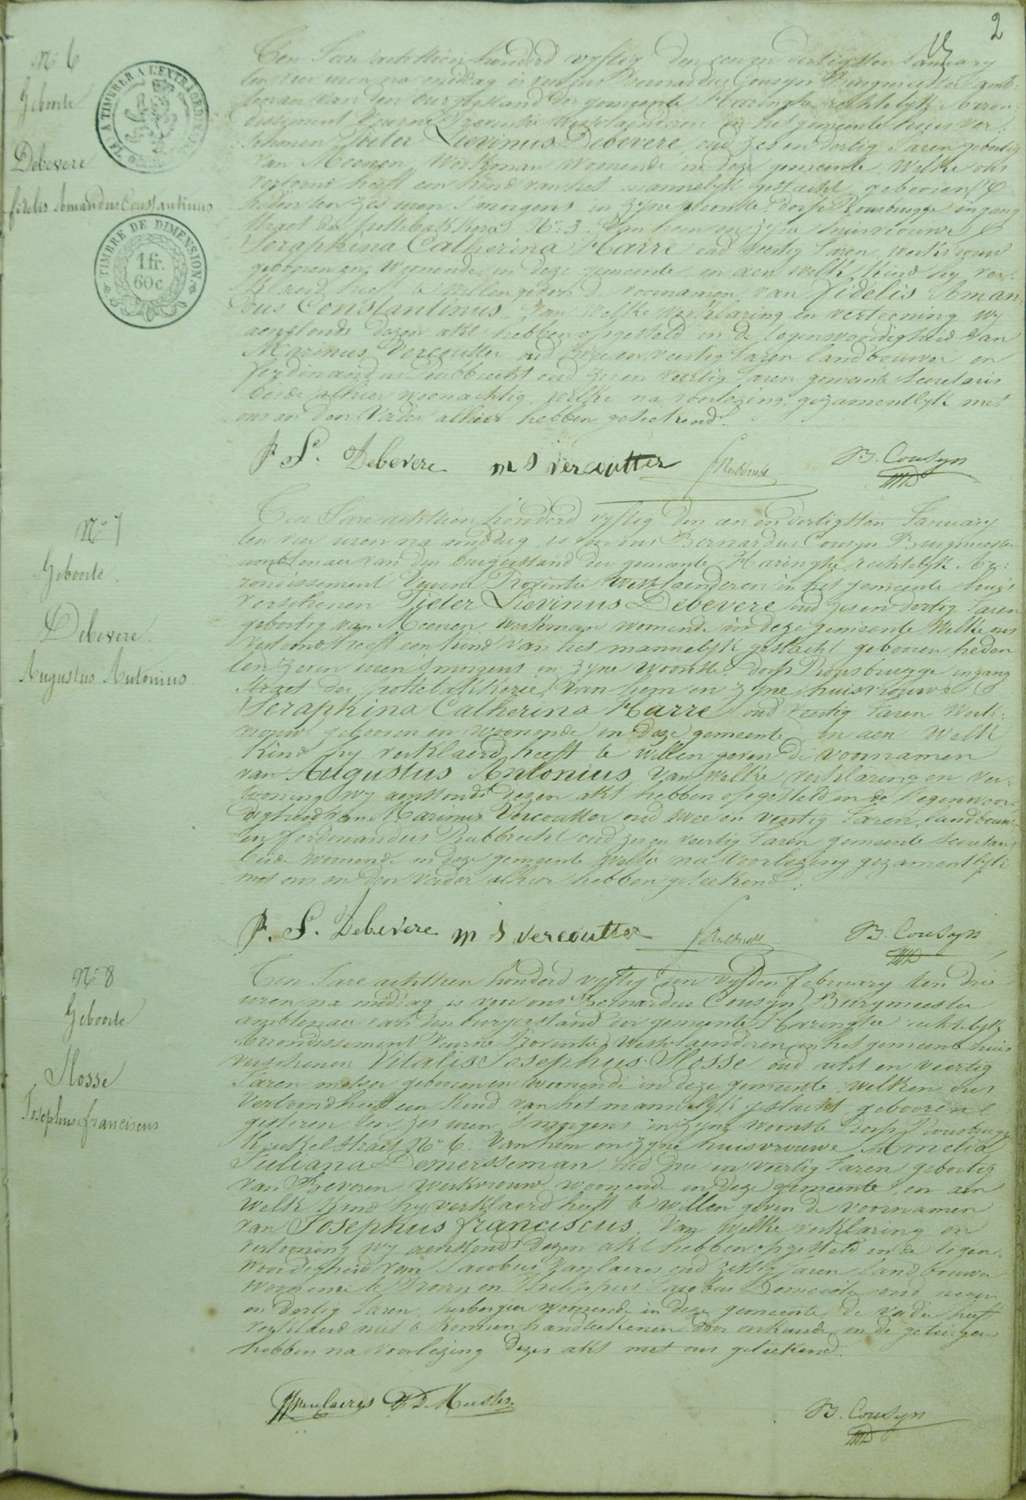 2
N° 6
Geboorte
Debevere
fidelis Amandus Constantinus
TIMBRE DE DIMENSION
1 fr.
60 c.
Een Jare achttien honderd vyftig den een en dertigsten January
ten vier uren na middag is voor ons Bernardus Cousyn Burgmeester amb-
tenaar van den burgerstand der gemeente Haringhe rechtelyk Arron-
dissement Veurne Provintie Westvlaenderen in het gemeente huis ver-
schenen Pieter Lievinus Debevere oud zes en dertig Jaren geboortig
van Meenen, Werkman woonende in deze gemeente Welke ons
vertoond heeft een kind van het mannelyk geslacht geboren
heden ten zes uren smorgens in zyne woonste dorp Rousbrugge ingang
straet der pottebakkerye N° 3. Van hem en zyne huisvrouwe
Seraphina Catherina Harre oud veertig Jaren, werkvrouw
geboren en Woonende in deze gemeente en aen welk kind hy ver-
klaerd heeft te willen geven de voornamen van Fidelis Aman-
dus Constantinus. Van welke verklaring en vertooning wy
aenstonds dezen akt hebben opgesteld in de tegenwoordigheid van
Marinus Vercoutter oud twee en veertig Jaren landbouwer en
Ferdinandus Rubbrecht oud zes en veertig Jaren gemeente secretaris
beide alhier woonachtig, welke na voorlezing gezamentlyk met
ons en den Vader alhier hebben geteekend.
P. L. Debevere m S vercoutter FRubbrecht B. Cousyn
N° 7
Geboorte.
Debevere.
Augustus Antonius
Een Jare achttien honderd vyftig den een en dertigsten January
ten vier uren na middag, is voor ons Bernardus Cousyn Burgmeester
ambtenaar van den burgerstand der gemeente Haringhe rechtelyk Ar-
rondissement Veurne Provintie Westvlaenderen in het gemeente huis
verschenen Pieter Lievinus Debevere oud zes en dertig Jaren
geboortig van Meenen, werkman woonende in deze gemeente Welke ons
vertoond heeft een kind van het mannelyk geslacht geboren heden
ten zeven uren smorgens in zyne woonste dorp Rousbrugge ingang
straet der pottebakkerye. Van hem en zyne huisvrouwe
Seraphina Catherina Harre oud veertig Jaren Werk-
vrouw geboren en woonende in deze gemeente En aen Welk
kind hy verklaerd heeft te willen geven de voornamen
van Augustus Antonius Van welke verklaring en ver-
tooning wy aenstonds dezen akt hebben opgesteld in de tegenwoor-
digheid van Marinus Vercoutter oud twee en veertig Jaren, landbouwer
en Ferdinandus Rubbrecht oud zes en veertig Jaren gemeente secretaris
beide woonende in deze gemeente welke na voorlezing gezamentlyk
met ons en den Vader alhier hebben geteekend.
P. L. Debevere m S vercoutter FRubbrecht B. Cousyn
N° 8
Geboorte
Hosse
Josephus franciscus
Een Jare achttien honderd vyftig den vyfden february ten drie
uren na middag is voor ons Bernardus Cousyn Burgmeester
ambtenaar van den burgerstand der gemeente Haringhe rechtelyk
Arrondissement Veurne Provintie Westvlaenderen in het gemeente huis
verschenen Vitalis Josephus Hosse oud acht en veertig
Jaren metser geboren en woonende in deze gemeente welken ons
Vertoond heeft een kind van het mannelyk geslacht geboren
gisteren ten zes uren smorgens in zyne woonste dorp Rousbrugge
straet N° 6. Van hem en zyne huisvrouwe Amelia
Juliana Demersseman oud twee en veertig Jaren geboortig
van Beveren Werkvrouw woonende in deze gemeente en aen
Welk kind hy verklaerd heeft te willen geven de voornamen
van Josephus franciscus Van welke verklaring en
vertooning wy aenstonds dezen akt hebben opgesteld in de tegen-
woordigheid van Jacobus Vanlaeres oud zestig Jaren Landbouwer
woonende te en Philippus Jacobus oud
en dertig Jaren herbergier woonende in deze gemeente de vader heeft
verklaerd niet te konnen handteekenen door onkunde en de getuigen
hebben na voorlezing dezen akt met ons geteekend.
B. Cousyn